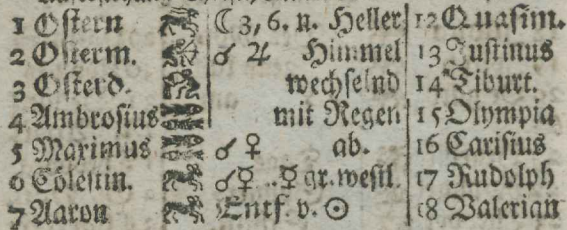 1 Ostern ☾ 3, 6. n. Heller 12 Quasim.
2 Osterm. ☌ ♃ Himmel 13 Justinus
3 Osterd. wechselnd 14 Tiburt.
4 Ambrosius mit Regen 15 Olympia
5 Maximus ☌ ♀ ab. 16 Carisius
6 Cölestin. ☌ ☿. ☿ gr. westl. 17 Rudolph
7 Aaron Entf. v. ☉ 18 Valerian